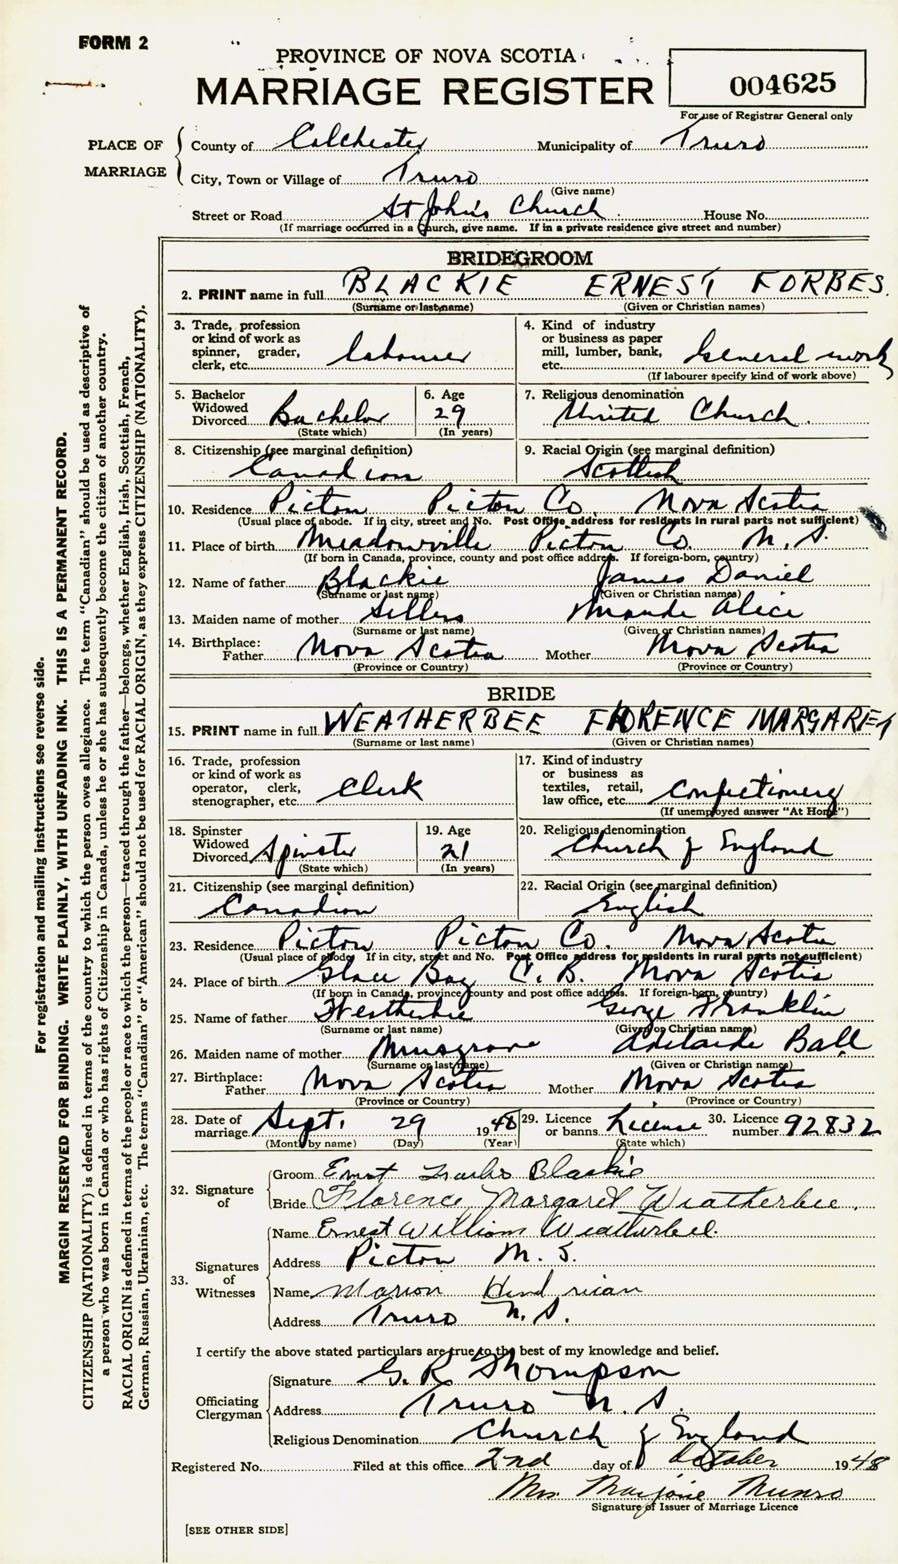 FORM 2
PROVINCE OF NOVA SCOTIA
MARRIAGE REGISTER
004625
For use of Registrar General only
PLACE OF MARRIAGE
County of Colchester Municipality of Truro
City, Town or Village of Truro
(Give name)
Street or Road St John's Church House No.
(If marriage occurred in a Church, give name. If in a private residence give street and number)
BRIDEGROOM
2. PRINT name in full BLACKIE ERNEST FORBES
(Surname or last name) (Given or Christian names)
3. Trade, profession or kind of work as spinner, grader, clerk, etc. labourer
4. Kind of industry or business as paper mill, lumber, bank, etc. General work
(If labourer specify kind of work above)
5. Bachelor Widowed Divorced Bachelor
(State which)
6. Age 29
(In years)
7. Religious denomination United Church
8. Citizenship (see marginal definition) Canadian
9. Racial Origin (see marginal definition) Scottish
10. Residence Pictou Pictou Co. Nova Scotia
(Usual place of abode. If in city, street and No. Post Office address for residents in rural parts not sufficient)
11. Place of birth Meadowville Pictou Co. N.S.
(If born in Canada, province, county and post office address. If foreign-born, country)
12. Name of father Blackie James Daniel
(Surname or last name) (Given or Christian names)
13. Maiden name of mother Sellers Maude Alice
(Surname or last name) (Given or Christian names)
14. Birthplace: Father Nova Scotia Mother Nova Scotia
(Province or Country) (Province or Country)
BRIDE
15. PRINT name in full WEATHERBEE FLORENCE MARGARET
(Surname or last name) (Given or Christian names)
16. Trade, profession or kind of work as operator, clerk, stenographer, etc. Clerk
17. Kind of industry or business as textiles, retail, law office, etc. Confectionery
(If unemployed answer "At Home")
18. Spinster Widowed Divorced Spinster
(State which)
19. Age 21
(In years)
20. Religious denomination Church of England
21. Citizenship (see marginal definition) Canadian
22. Racial Origin (see marginal definition) English
23. Residence Pictou Pictou Co. Nova Scotia
(Usual place of abode. If in city, street and No. Post Office address for residents in rural parts not sufficient)
24. Place of birth Glace Bay C.B. Nova Scotia
(If born in Canada, province, county and post office address. If foreign-born, country)
25. Name of father Weatherbee George Franklin
(Surname or last name) (Given or Christian names)
26. Maiden name of mother Musgrave Adelaide Ball
(Surname or last name) (Given or Christian names)
27. Birthplace: Father Nova Scotia Mother Nova Scotia
(Province or Country) (Province or Country)
28. Date of marriage Sept. 29 1948
(Month by name) (Day) (Year)
29. Licence or banns License
(State which)
30. Licence number 92832
32. Signature of
Groom Ernest Forbes Blackie
Bride Florence Margaret Weatherbee.
33. Signatures of Witnesses
Name Ernest William Weatherbee.
Address Pictou N.S.
Name Marion
Address Truro N.S.
I certify the above stated particulars are true to the best of my knowledge and belief.
Officiating Clergyman
Signature G. R. Thompson
Address Truro N.S.
Religious Denomination Church of England
Registered No. Filed at this office 2nd day of October 1948
Mrs Marjorie Munro
Signature of Issuer of Marriage Licence
[SEE OTHER SIDE]
For registration and mailing instructions see reverse side.
MARGIN RESERVED FOR BINDING. WRITE PLAINLY, WITH UNFADING INK. THIS IS A PERMANENT RECORD.
CITIZENSHIP (NATIONALITY) is defined in terms of the country to which the person owes allegiance. The term "Canadian" should be used as descriptive of
a person who was born in Canada or who has rights of Citizenship in Canada, unless he or she has subsequently become the citizen of another country.
RACIAL ORIGIN is defined in terms of the people or race to which the person—traced through the father—belongs, whether English, Irish, Scottish, French,
German, Russian, Ukrainian, etc. The terms "Canadian" or "American" should not be used for RACIAL ORIGIN, as they express CITIZENSHIP (NATIONALITY).